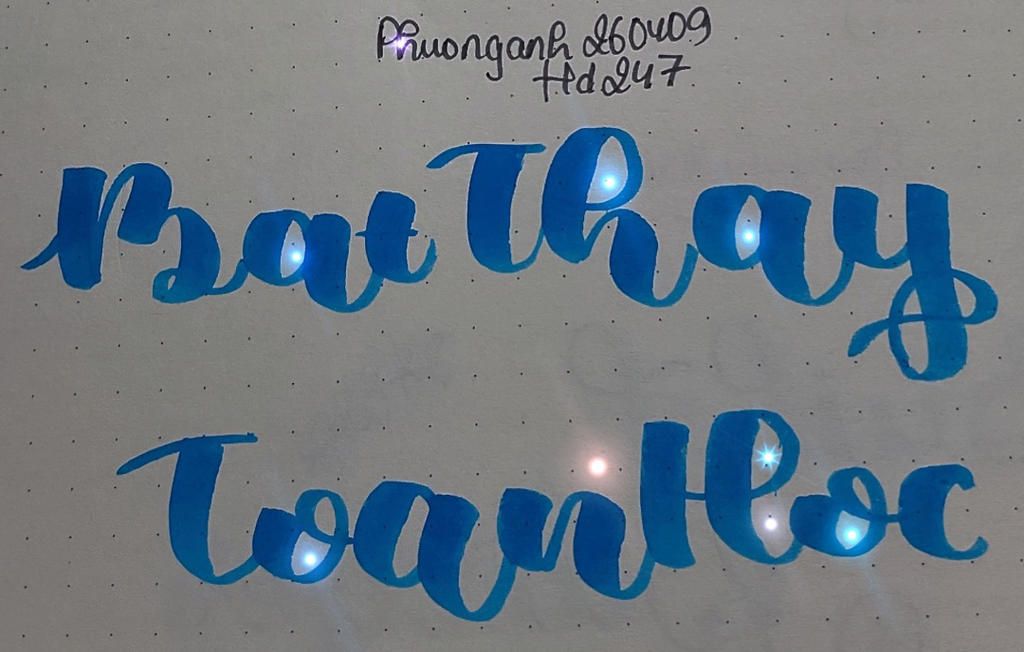 Phuonganh 260409
Hd 247
Bat Thay
Toan Hoc